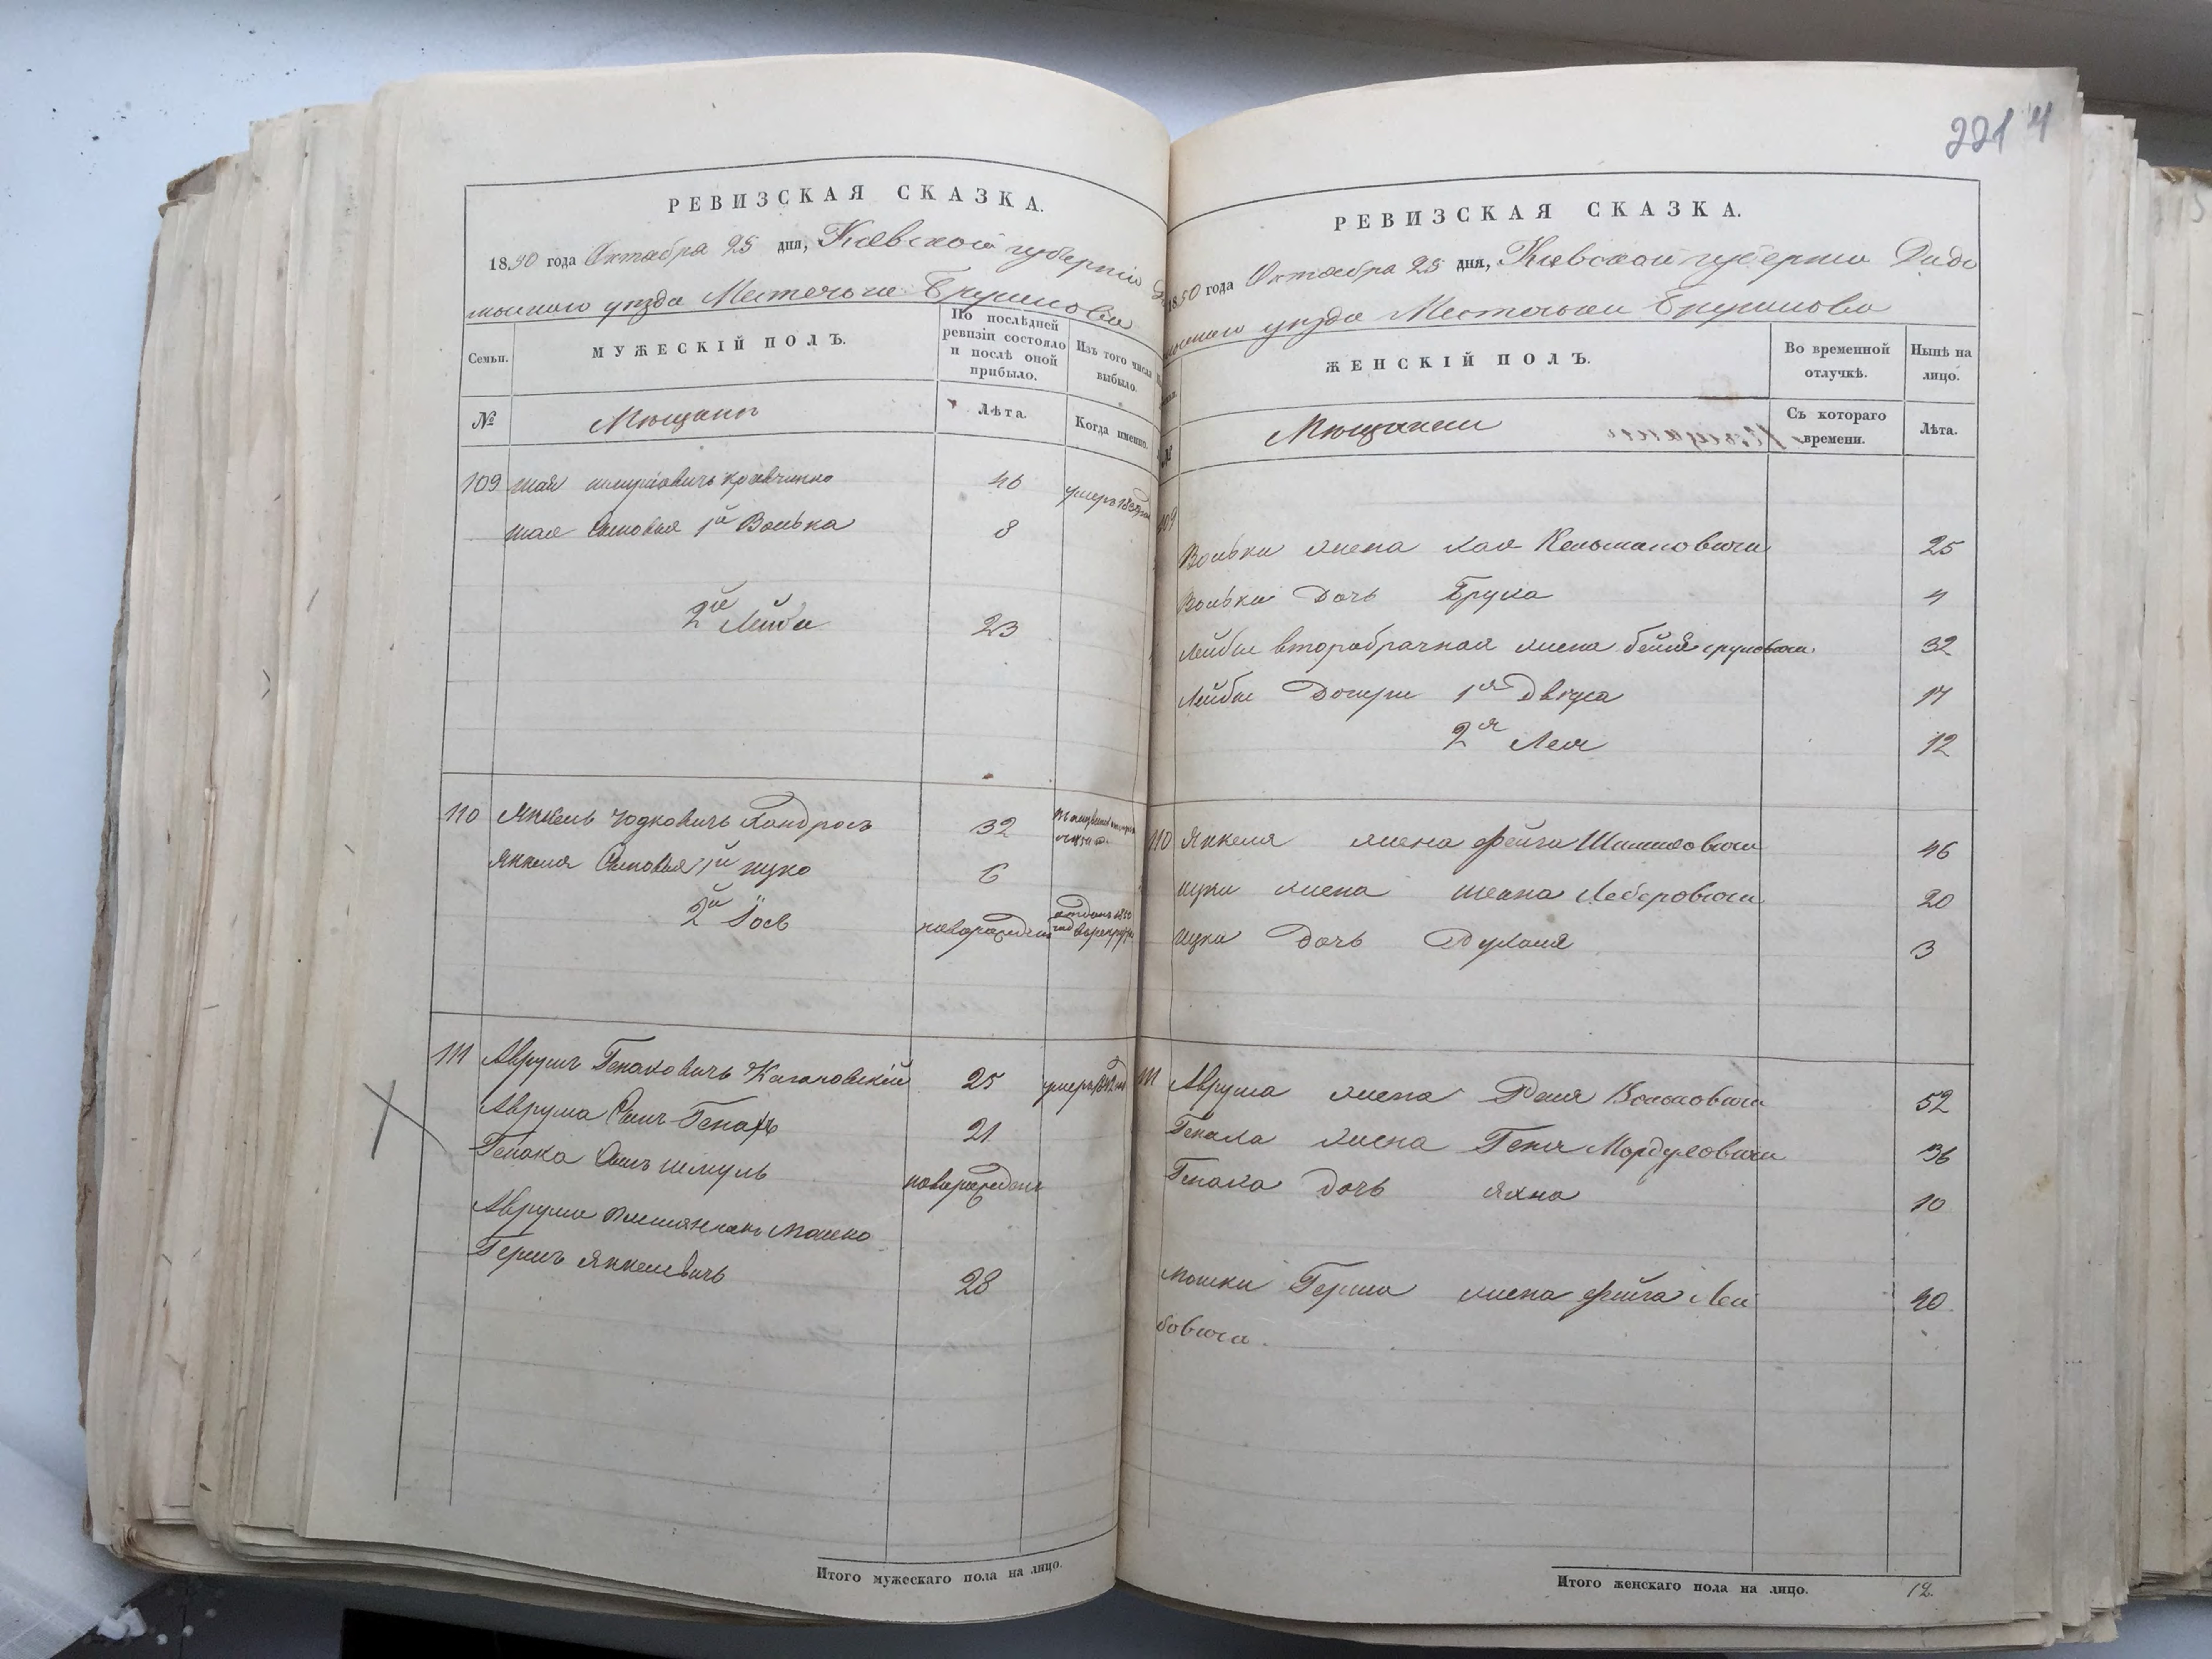 РЕВИЗСКАЯ СКАЗКА.
1850 года Октября 25 дня, Киевской губернии
мысльского уезда Местечка Брусилова
Семьи.
МУЖЕСКІЙ ПОЛЪ.
По послѣдней ревизіи состояло и послѣ оной прибыло.
Изъ того числа выбыло.
№
Мѣщане
Лѣта.
Когда именно.
109 Шая Шмулiовичъ Кравченко 46
Шаи Сыновья 1й Волька 8
2й Лейба 23
110 Янкель 32
Янкеля Сыновья 1й Ицко 6
2й Іось новорожден
111 Аврумъ Генаховичъ Кагановскій 25
Аврума Сынъ Генахъ 21
Генаха Сынъ Шмуль новорожден
Аврума племянникъ Мошко
Гершъ Янкелевичъ 28
Итого мужескаго пола на лицо.
2214
РЕВИЗСКАЯ СКАЗКА.
1850 года Октября 25 дня, Киевской губернии Радо
мысльского уезда Местечка Брусилова
ЖЕНСКІЙ ПОЛЪ.
Во временной отлучкѣ.
Нынѣ на лицо.
№
Мѣщанки
Съ котораго времени.
Лѣта.
109
Вольки жена Хая Кельмановичи 25
Вольки Дочь Брука 4
Лейбы второбрачная жена Бейля 32
Лейбы Дочери 1я Двойра 17
2я Лея 12
110 Янкеля жена Фейга 46
Ицки жена Лейбровичи 20
Ицки Дочь 3
111 Аврума жена Рейзя Вольковичи 52
Генаха жена Геня Мордуховичи 36
Генаха дочь Яхна 10
Мошки Герша жена Фейга Лей
бовичи 40
Итого женскаго пола на лицо. 12.